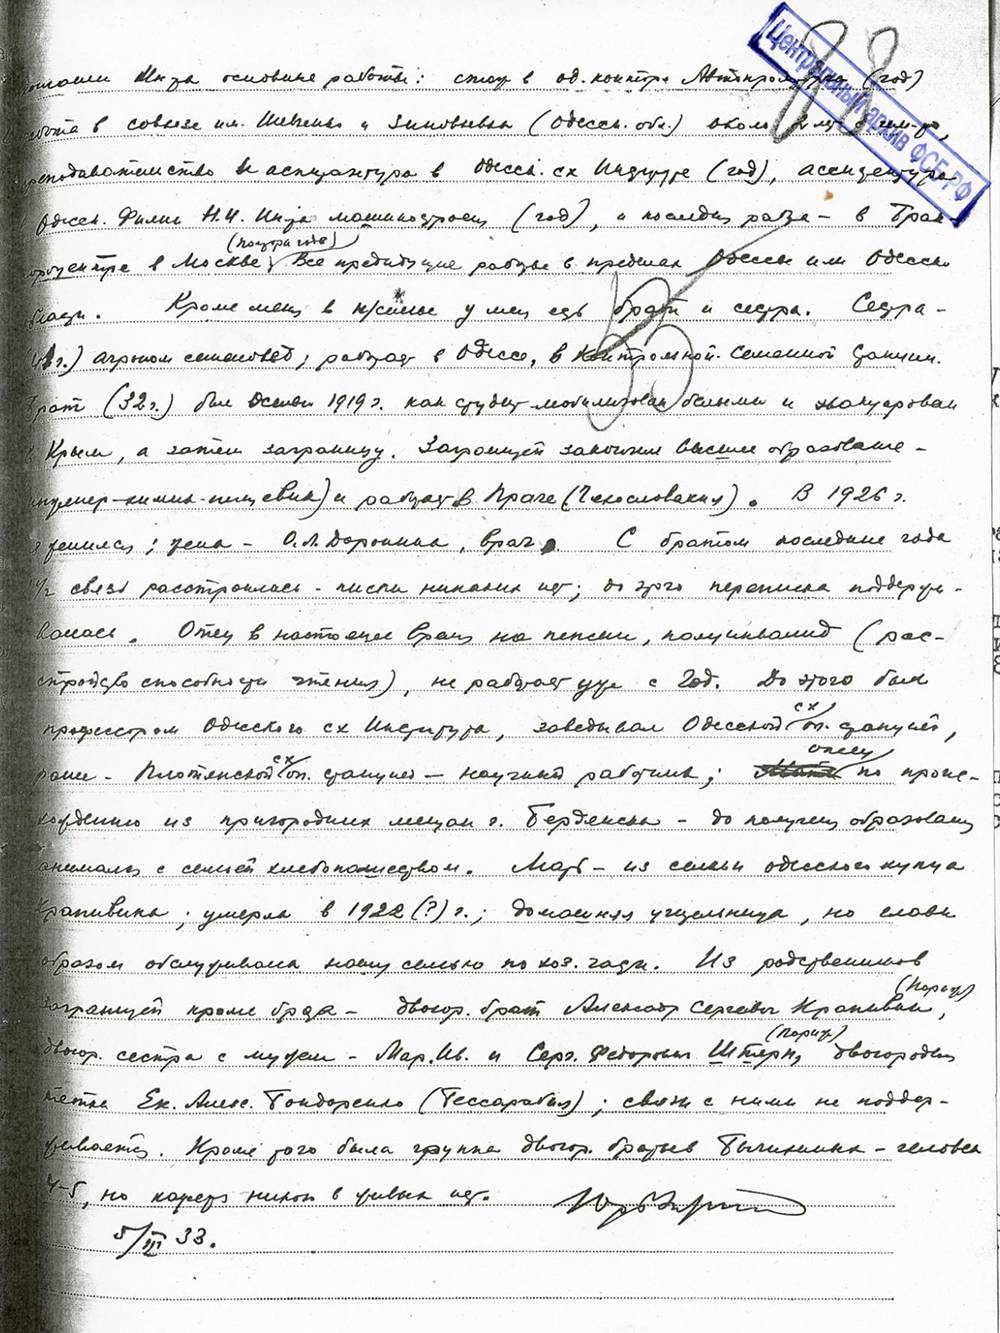 Центральный архив ФСБ РФ
Инза основные работы: стаж в од. конторе Автопромторга (год)
в совхозе им. Шевченко и Зиновьевка (Одесск. обл.) около
аспирантура в Одесск. сх Институте (год), ассистентура
Одесск. Филии Н.И. Инза машиностроен (год), и последн работа – в Трак-
(полтора года)
центре в Москве. Все предыдущие работы в пределах Одессы или Одесск.
Кроме меня в живых у меня есть брат и сестра. Сестра -
агроном семеновед; работает в Одессе, в Контрольной Семенной станции.
Брат (32 г.) был осенью 1919 г. как студент мобилизован белыми и эвакуирован
в Крым, а затем заграницу. Заграницей закончил высшее образование -
инженер-химик-пищевик) и работает в Праге (Чехословакия). В 1926 г.
женился; жена – О.Л. Доронина, врач. С братом последние года
связь расстроилась - писем никаких нет; до этого переписка поддержи-
валась. Отец в настоящее время на пенсии, полуинвалид (рас-
стройство способности чтения), не работает уже с год. До этого был
сх
профессором Одесского сх Института, заведывал Одесской оп. станцией,
сх отец
ранее - Плотянской оп. станцией – научный работник; по проис-
хождению из пригородних мещан г. Бердянска – до получен образования
занимался с семьей хлебопашеством. Мать – из семьи одесского купца
Крапивина; умерла в 1922 (?) г.; домашняя учительница, но главн
образом обслуживала нашу семью по хоз. части. Из родственников
(Париж)
заграницей кроме брата – двоюр. брат Александр Сергеевич Крапивин,
(Париж)
двоюр. сестра с мужем – Мар. Ив. и Серг. Федорович Штерн, двоюродная
тетка Ек. Алекс. Бондаренко (Бессарабия); связи с ними не поддер-
живается. Кроме того была группа двоюр. братьев – человек
4-5, но теперь никого в живых нет.
5/III 33.